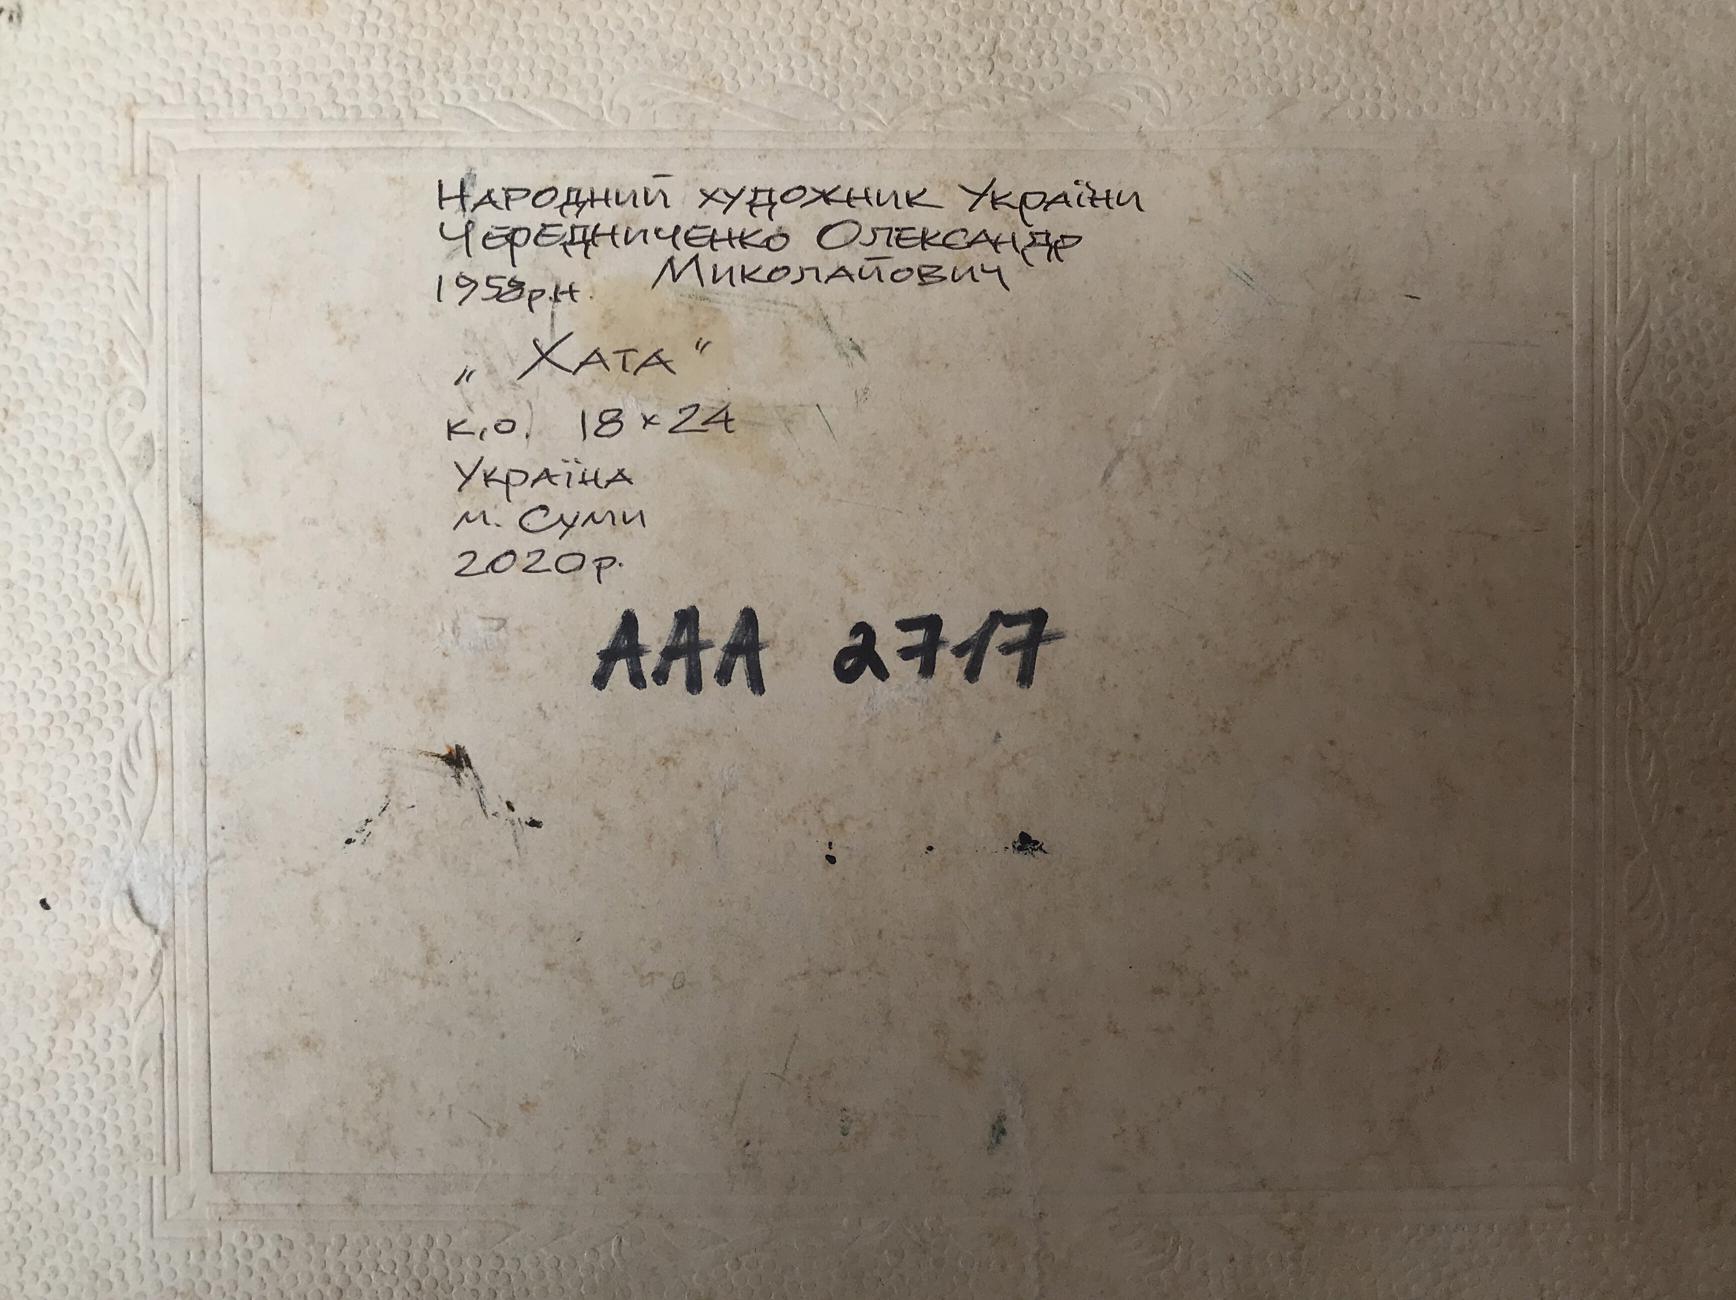 Народний художник України
Чередниченко Олександр
Миколайович
1958р.н.
„ Хата "
к.о. 18 x 24
Україна
м. Суми
2020р.
ААА 2717